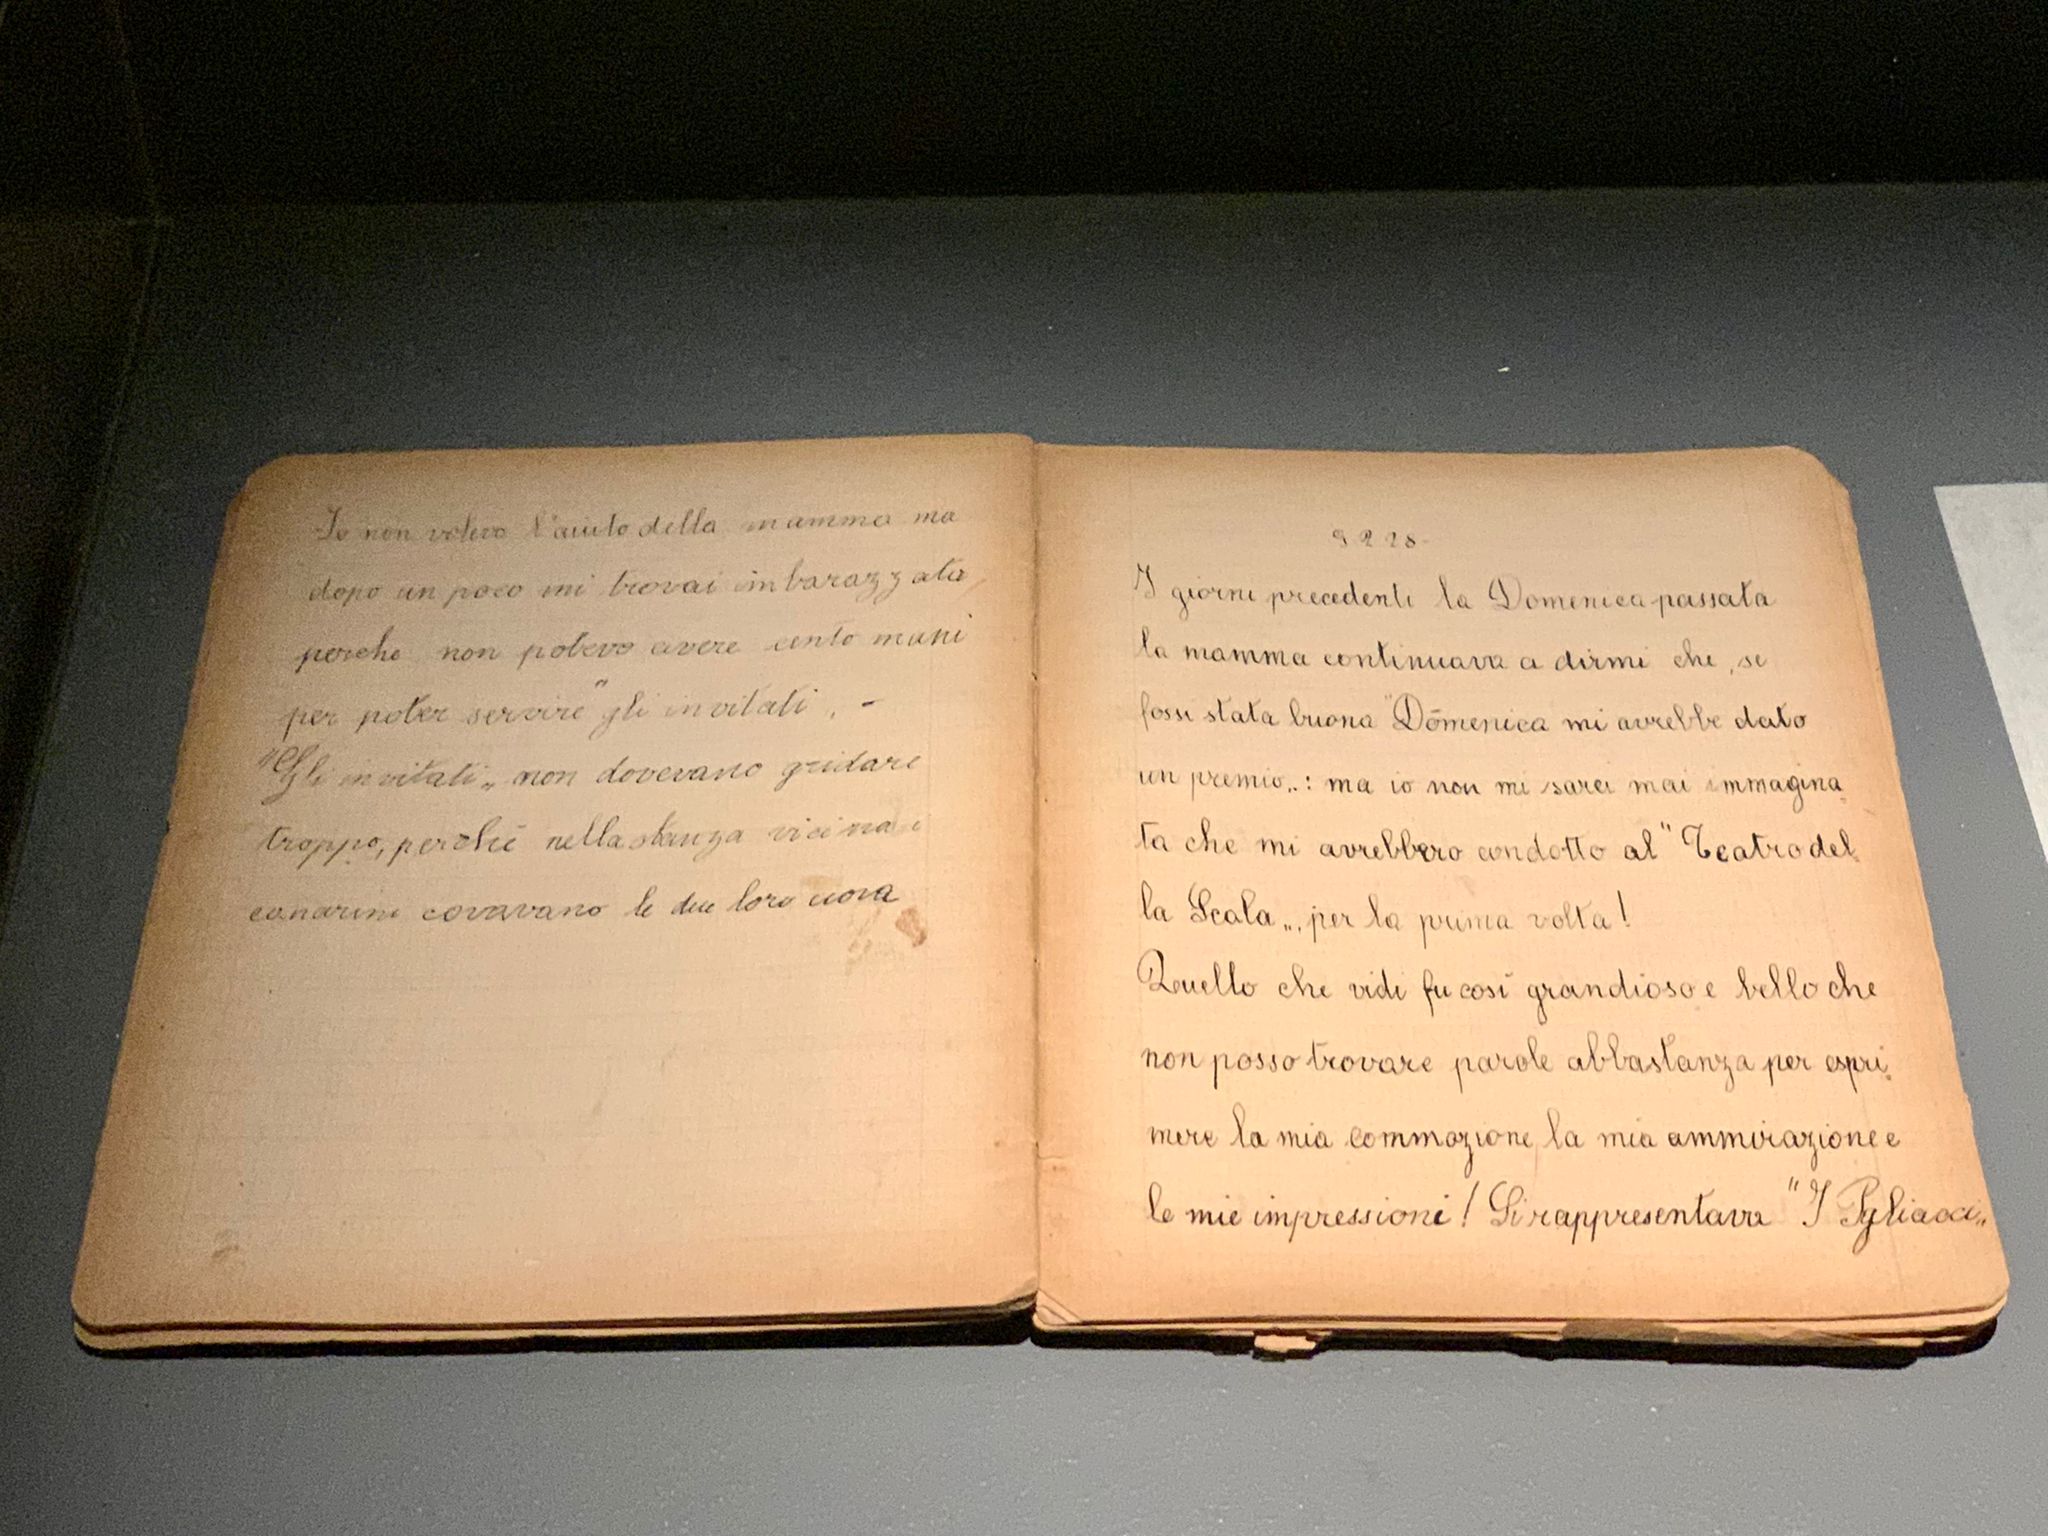 Io non volevo l'aiuto della mamma ma
dopo un poco mi trovai imbarazzata,
perche non potevo avere cento mani
per poter servire "gli invitati". -
"Gli invitati„ non dovevano gridare
troppo, perchè nella stanza vicina i
canarini covavano le due loro uova
9 2 28-
I giorni precedenti la Domenica passata
la mamma continuava a dirmi che, se
fossi stata buona "Domenica mi avrebbe dato
un premio„: ma io non mi sarei mai immagina
ta che mi avrebbero condotto al "Teatro del
la Scala„, per la prima volta!
Quello che vidi fu così grandioso e bello che
non posso trovare parole abbastanza per espri
mere la mia commozione, la mia ammirazione e
le mie impressioni! Si rappresentava "I Pgliacci„